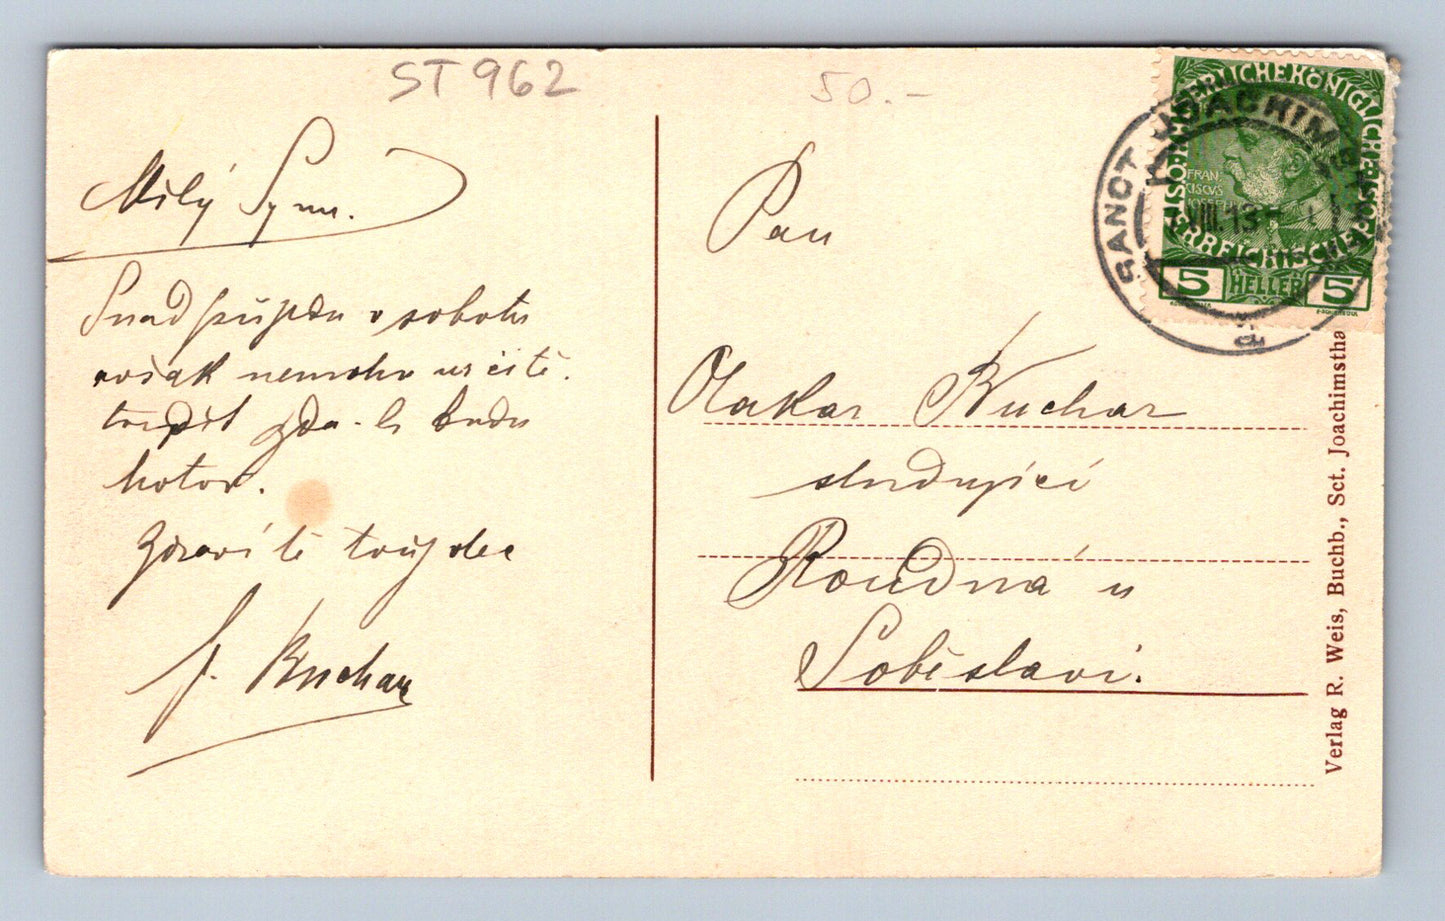 ST 962
50.-
Milý Synu.
Snad přijedu v sobotu
avšak nemohu určitě
tvrdit zda-li budu
hotov.
Zdraví tě tvůj otec
J. Buchar
Pan
Otakar Buchar
studující
Roudná u
Soběslavi.
KAISERLICHE KÖNIGLICHE
ÖSTERREICHISCHE POST
FRAN
CISCVS
JOSEPH
5 HELLER 5
SANCT JOACHIMSTHAL
VIII.13
a
Verlag R. Weis, Buchb., Sct. Joachimstha